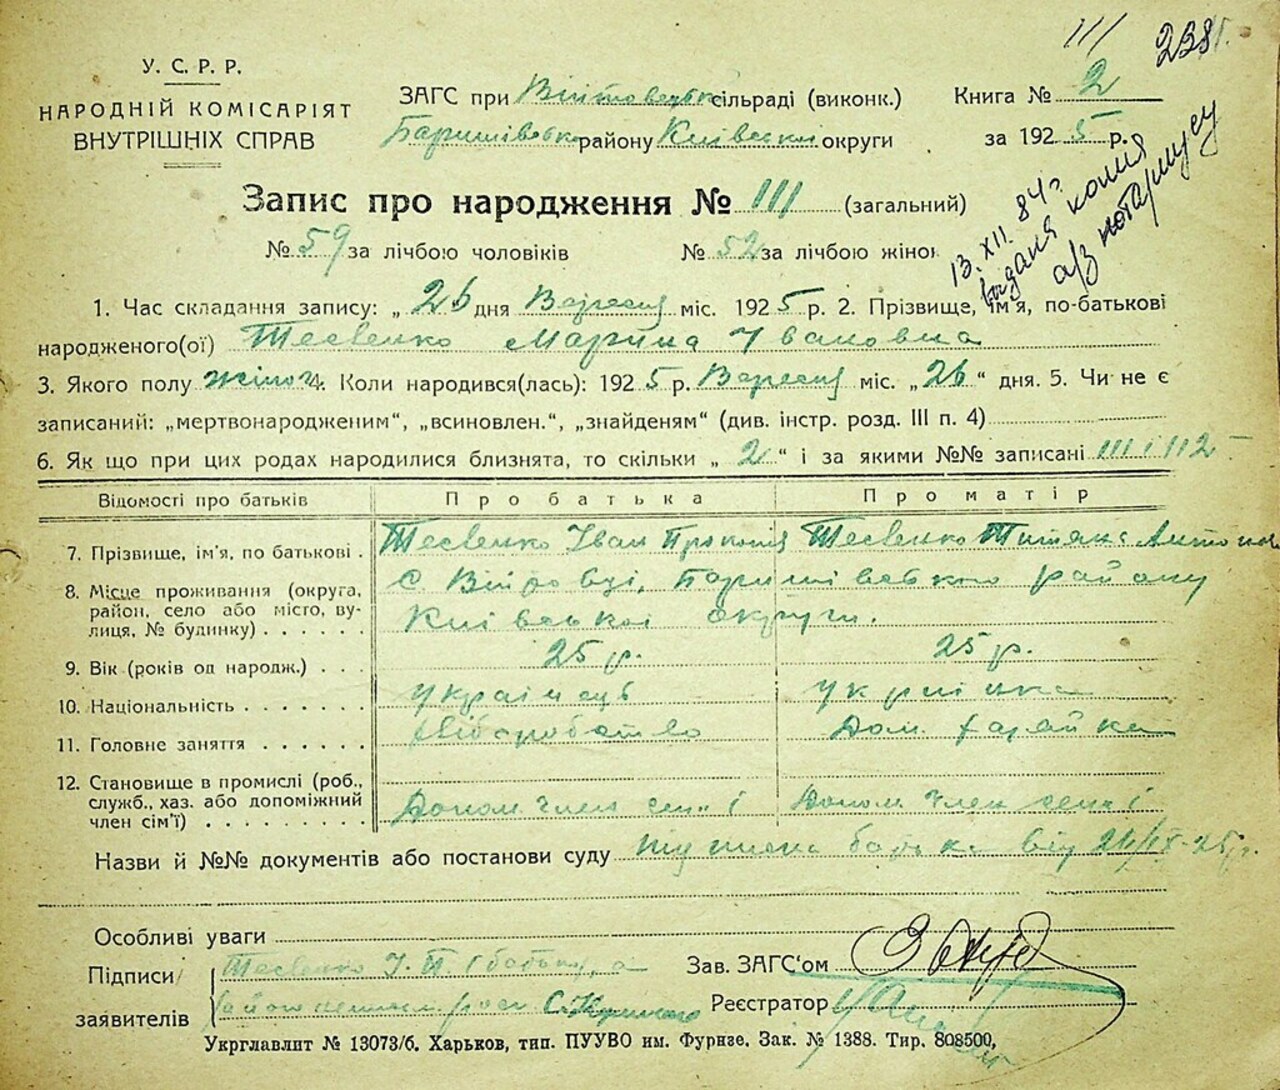 III
238
У. С. Р. Р.
НАРОДНІЙ КОМІСАРІЯТ
ВНУТРІШНІХ СПРАВ
ЗАГС при сільраді (виконк.)
Баришівськ району Київської округи
Книга № 2
за 1925 р.
13. XII. 84 г
видана копия
а/з нотариусу
Запис про народження № 111 (загальний)
№ 59 за лічбою чоловіків № 52 за лічбою жінок
1. Час складання запису: „ 26 дня Вересня міс. 1925 р. 2. Прізвище, ім'я, по-батькові
народженого(ої) Тесвенко Марина Івановна
3. Якого полу жіноч 4. Коли народився(лась): 1925 р. Вересня міс. „26“ дня. 5. Чи не є
записаний: „мертвонародженим“, „всиновлен.“, „знайденям“ (див. інстр. розд. III п. 4)
6. Як що при цих родах народилися близнята, то скільки „ 2 “ і за якими №№ записані 111 і 112
Відомості про батьків Про батька Про матір
7. Прізвище, ім'я, по батькові . Тесвенко Іван Прокопів Тесвенко Титяна Антонов
8. Місце проживання (округа, район, село або місто, вулиця, № будинку) . . . . . . с. Війтовці, Баришівського району
Київської округи.
9. Вік (років од народж.) . . . 25 р. 25 р.
10. Національність . . . . . . . Українець Українка
11. Головне заняття . . . . . . Хліборобство Дом. хазяйка
12. Становище в промислі (роб., служб., хаз. або допоміжний член сім'ї) . . . . . . . . . Допом член сем'ї Допом член сем'ї
Назви й №№ документів або постанови суду підписка батька від 26/IX-25 р.
Особливі уваги
Підписи Тесвенко І. П. батько, а
заявителів
Зав. ЗАГС‘ом
Реєстратор
Укрглавлит № 13073/б. Харьков, тип. ПУУВО им. Фурнзе. Зак. № 1388. Тир. 808500,